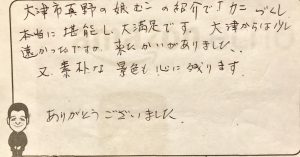 大津市真野の娘むこの紹介で「カニづくし
本当に堪能し、大満足です。大津からは少し
遠かったですが、来たかいがありました、、
又、素朴な景色も心に残ります。
ありがとうございました。